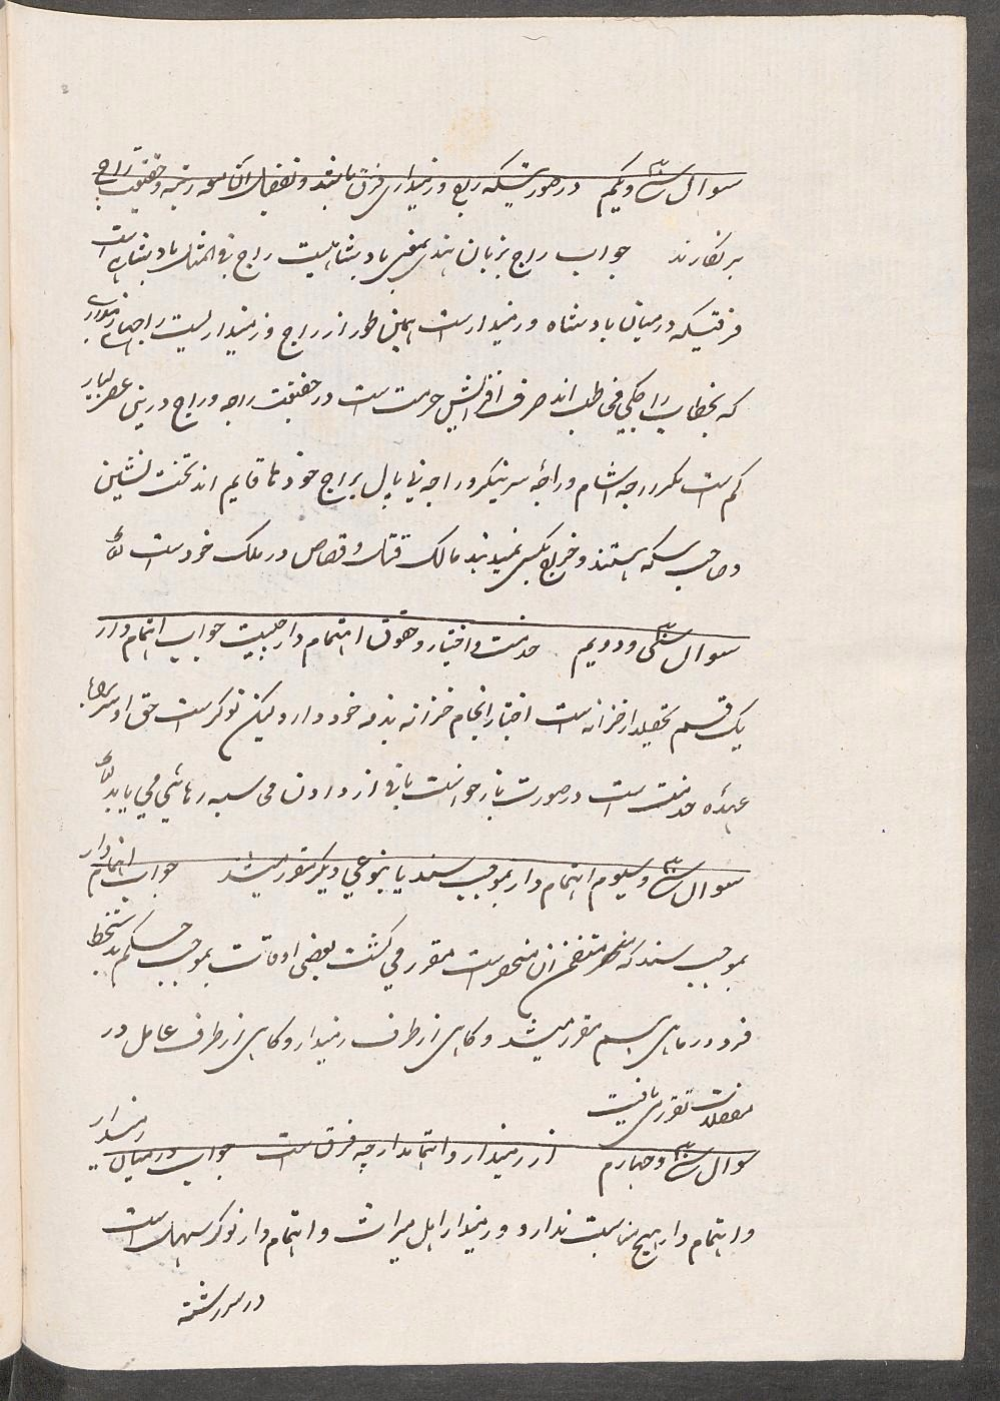 سوال سی و یکم درصورتیکه راج و زمینداری فرق باشد و تفصیل آن رتبه و حقیقت راج
برنگارند جواب راج بزبان هندی بمعنی بادشاهیست راج فی المثل بادشاه است
فرقیکه درمیان بادشاه و زمیندارست همین طور از راج و زمینداریست
که بخطاب راجکی مخاطب اند صرف افزایش حرمت است در حقیقت راجه و راج درین عصر بسیار
کم است مگر راجه اشام و راجهٔ سرینگر و راجه نیپال براج خودها قایم اند تخت نشین
و صاحب سکه هستند و خراج بکسی نمیدهند مالک قتل و قصاص در ملک خودست
سوال سی و دویم خدمت و اختیار و حقوق اهتمام دار چیست جواب اهتمام دار
یک قسم تحصیلدار خزانه است اختیار انجام خزانه بذمه خود دارد لیکن نوکرست حق او
عهدهٔ خدمت است درصورت بازخواست باقی از دادن محاسبه رهائی می یابد
سوال سی و سیوم اهتمام دار بموجب سند یا بنوعی دیگر مقرر میشد جواب اهتمام دار
بموجب سند که متضمن آن منحصرست مقرر می گشت بعضی اوقات بموجب حکم بدستخط
فرد درماهی اسم مقرر میشد و گاهی از طرف زمیندار و گاهی از طرف عامل در
مفصلات تقرری یافت
سوال سی و چهارم از زمیندار و اهتمامدار چه فرق است جواب درمیان زمیندار
و اهتمام دار هیچ مناسبت ندارد و زمیندار اهل میراث و اهتمام دار نوکر است
در سررشته